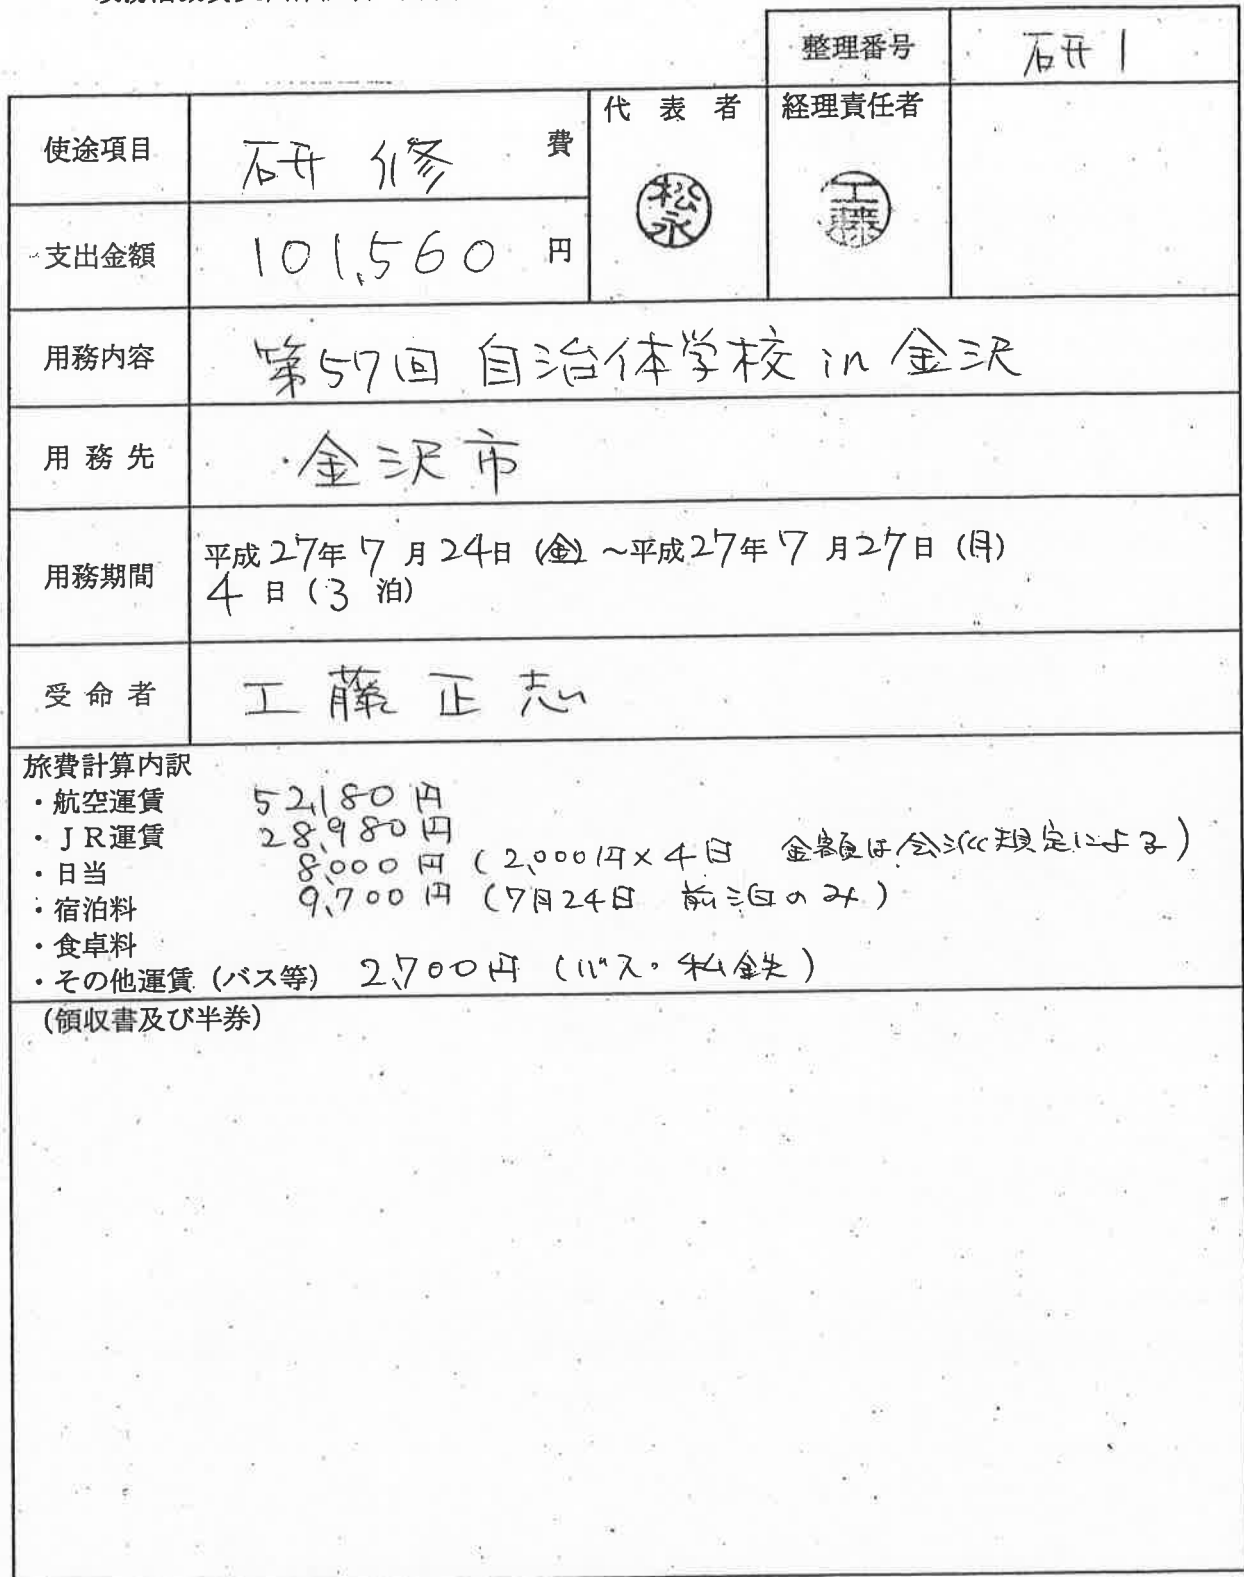 整理番号 研1
使途項目 研修 費
代表者 経理責任者
松永 工藤
支出金額 101,560 円
用務内容 第57回 自治体学校 in 金沢
用務先 金沢市
用務期間 平成27年7月24日(金)～平成27年7月27日(月)
4日(3泊)
受命者 工藤正志
旅費計算内訳
・航空運賃 52,180円
・JR運賃 28,980円
・日当 8,000円 (2,000円×4日 金額は会派規定による)
・宿泊料 9,700円 (7月24日 前泊のみ)
・食卓料
・その他運賃(バス等) 2,700円 (バス・私鉄)
(領収書及び半券)